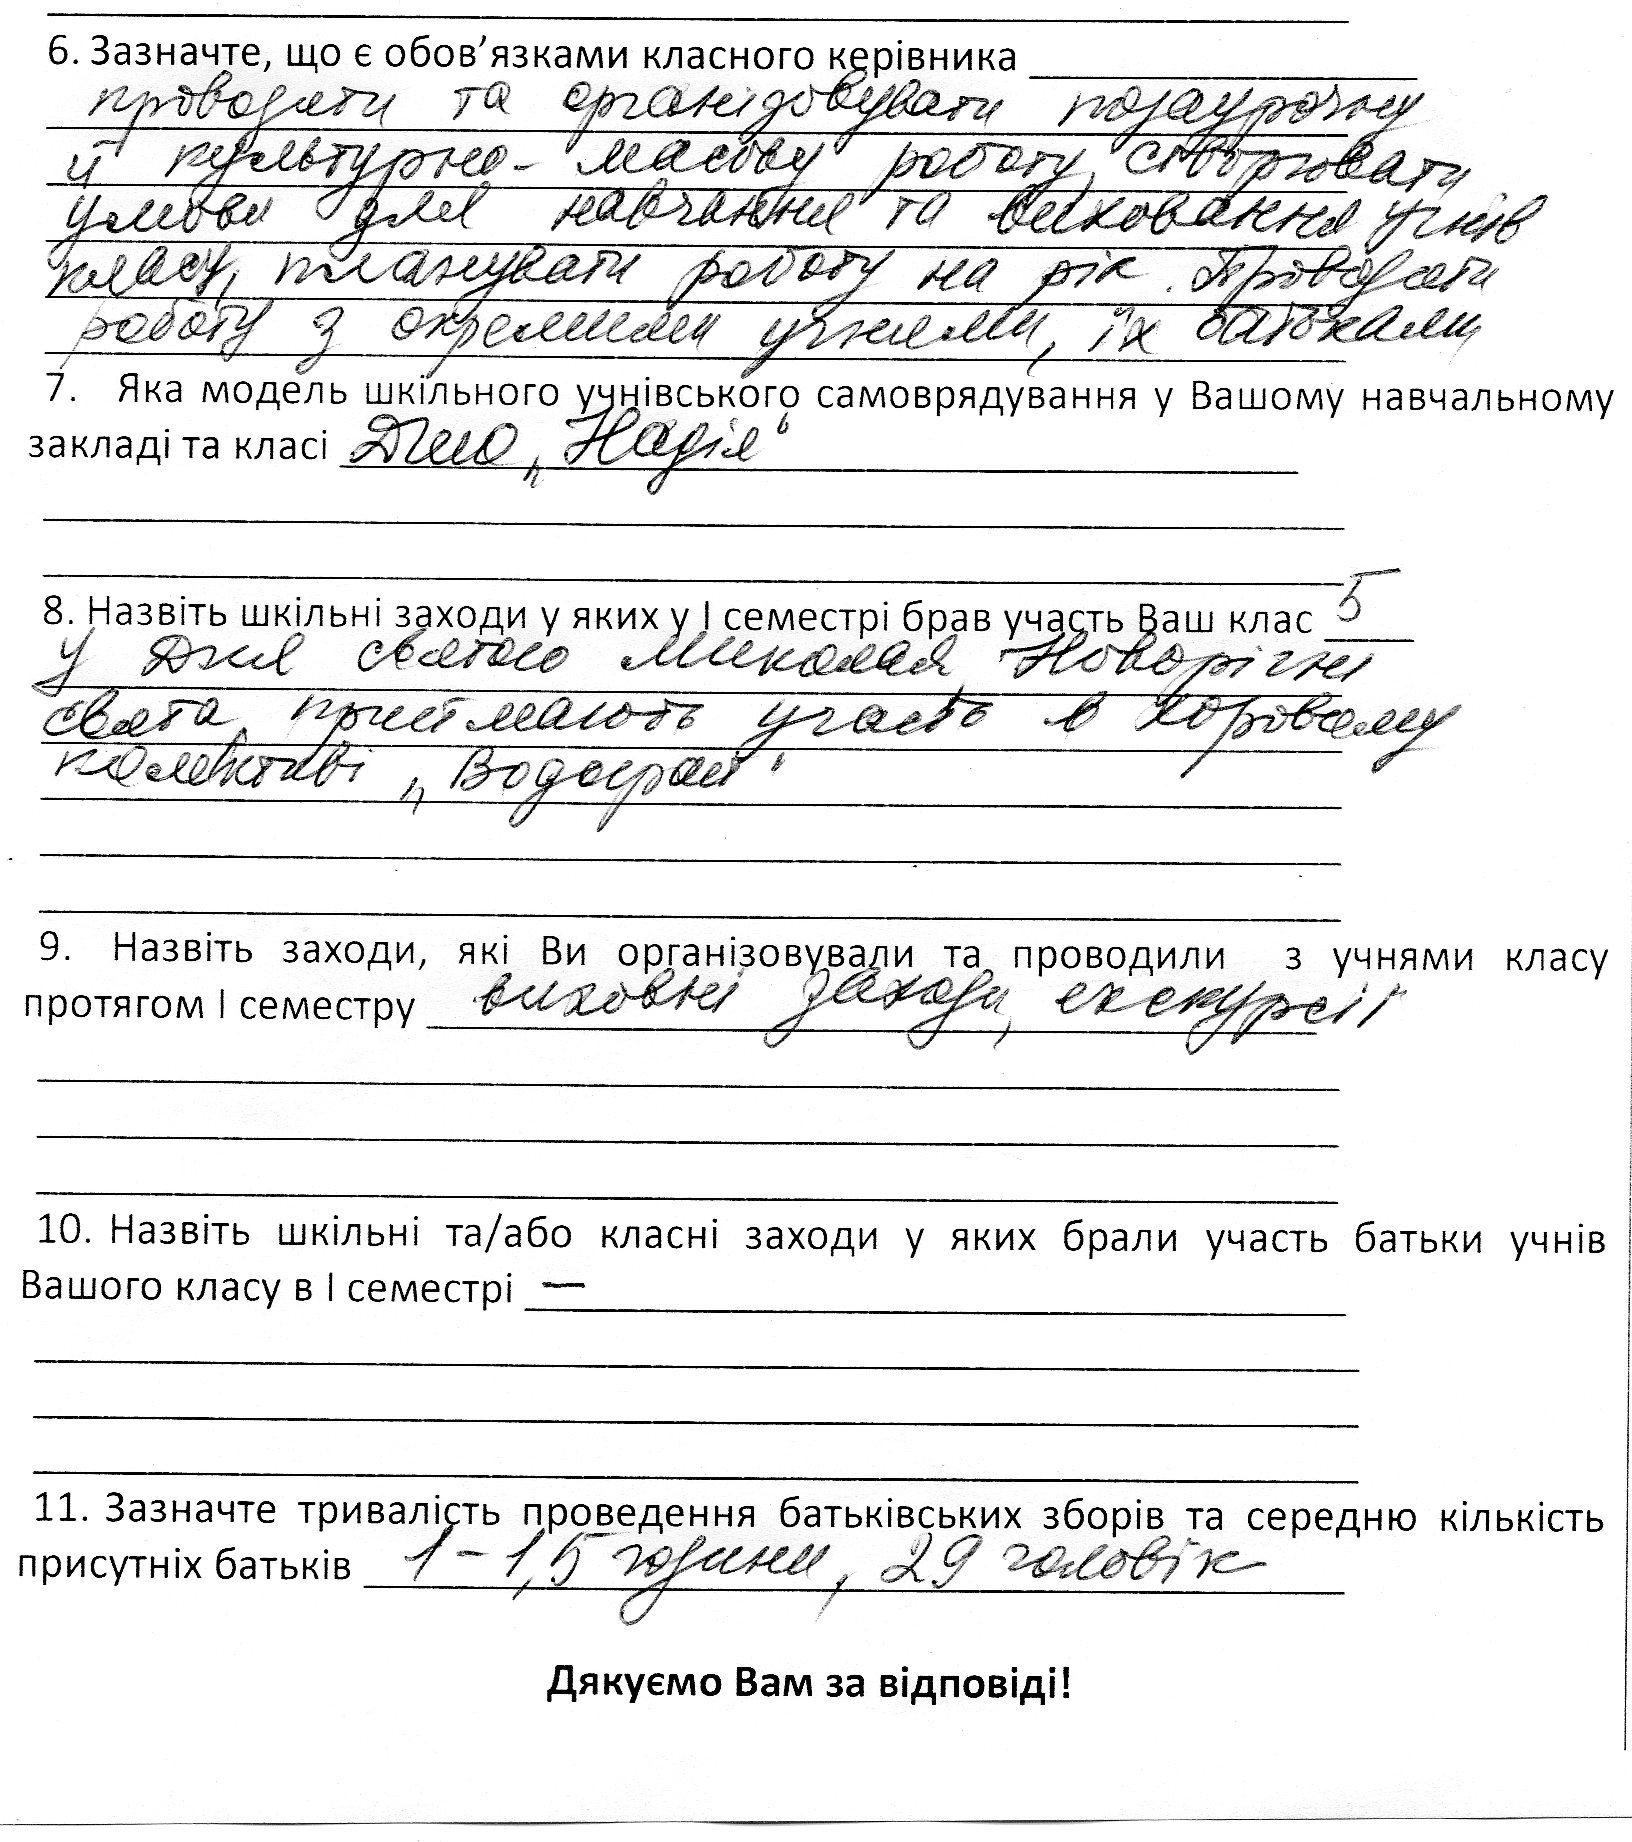 6. Зазначте, що є обов’язками класного керівника
проводити та організовувати позаурочну
й культурно- масову роботу, створювати
умови для навчання та виховання учнів
класу, планувати роботу на рік. Проводити
роботу з окремими учнями, їх батьками
7. Яка модель шкільного учнівського самоврядування у Вашому навчальному
закладі та класі „Надія“
8. Назвіть шкільні заходи у яких у І семестрі брав участь Ваш клас 5
у Дня святого Миколая, Новорічні
свята, приймають участь в хоровому
колективі „Водограй“
9. Назвіть заходи, які Ви організовували та проводили з учнями класу
протягом І семестру виховні заходи, екскурсії
10. Назвіть шкільні та/або класні заходи у яких брали участь батьки учнів
Вашого класу в І семестрі —
11. Зазначте тривалість проведення батьківських зборів та середню кількість
присутніх батьків 1 – 1,5 години, 29 чоловік
Дякуємо Вам за відповіді!